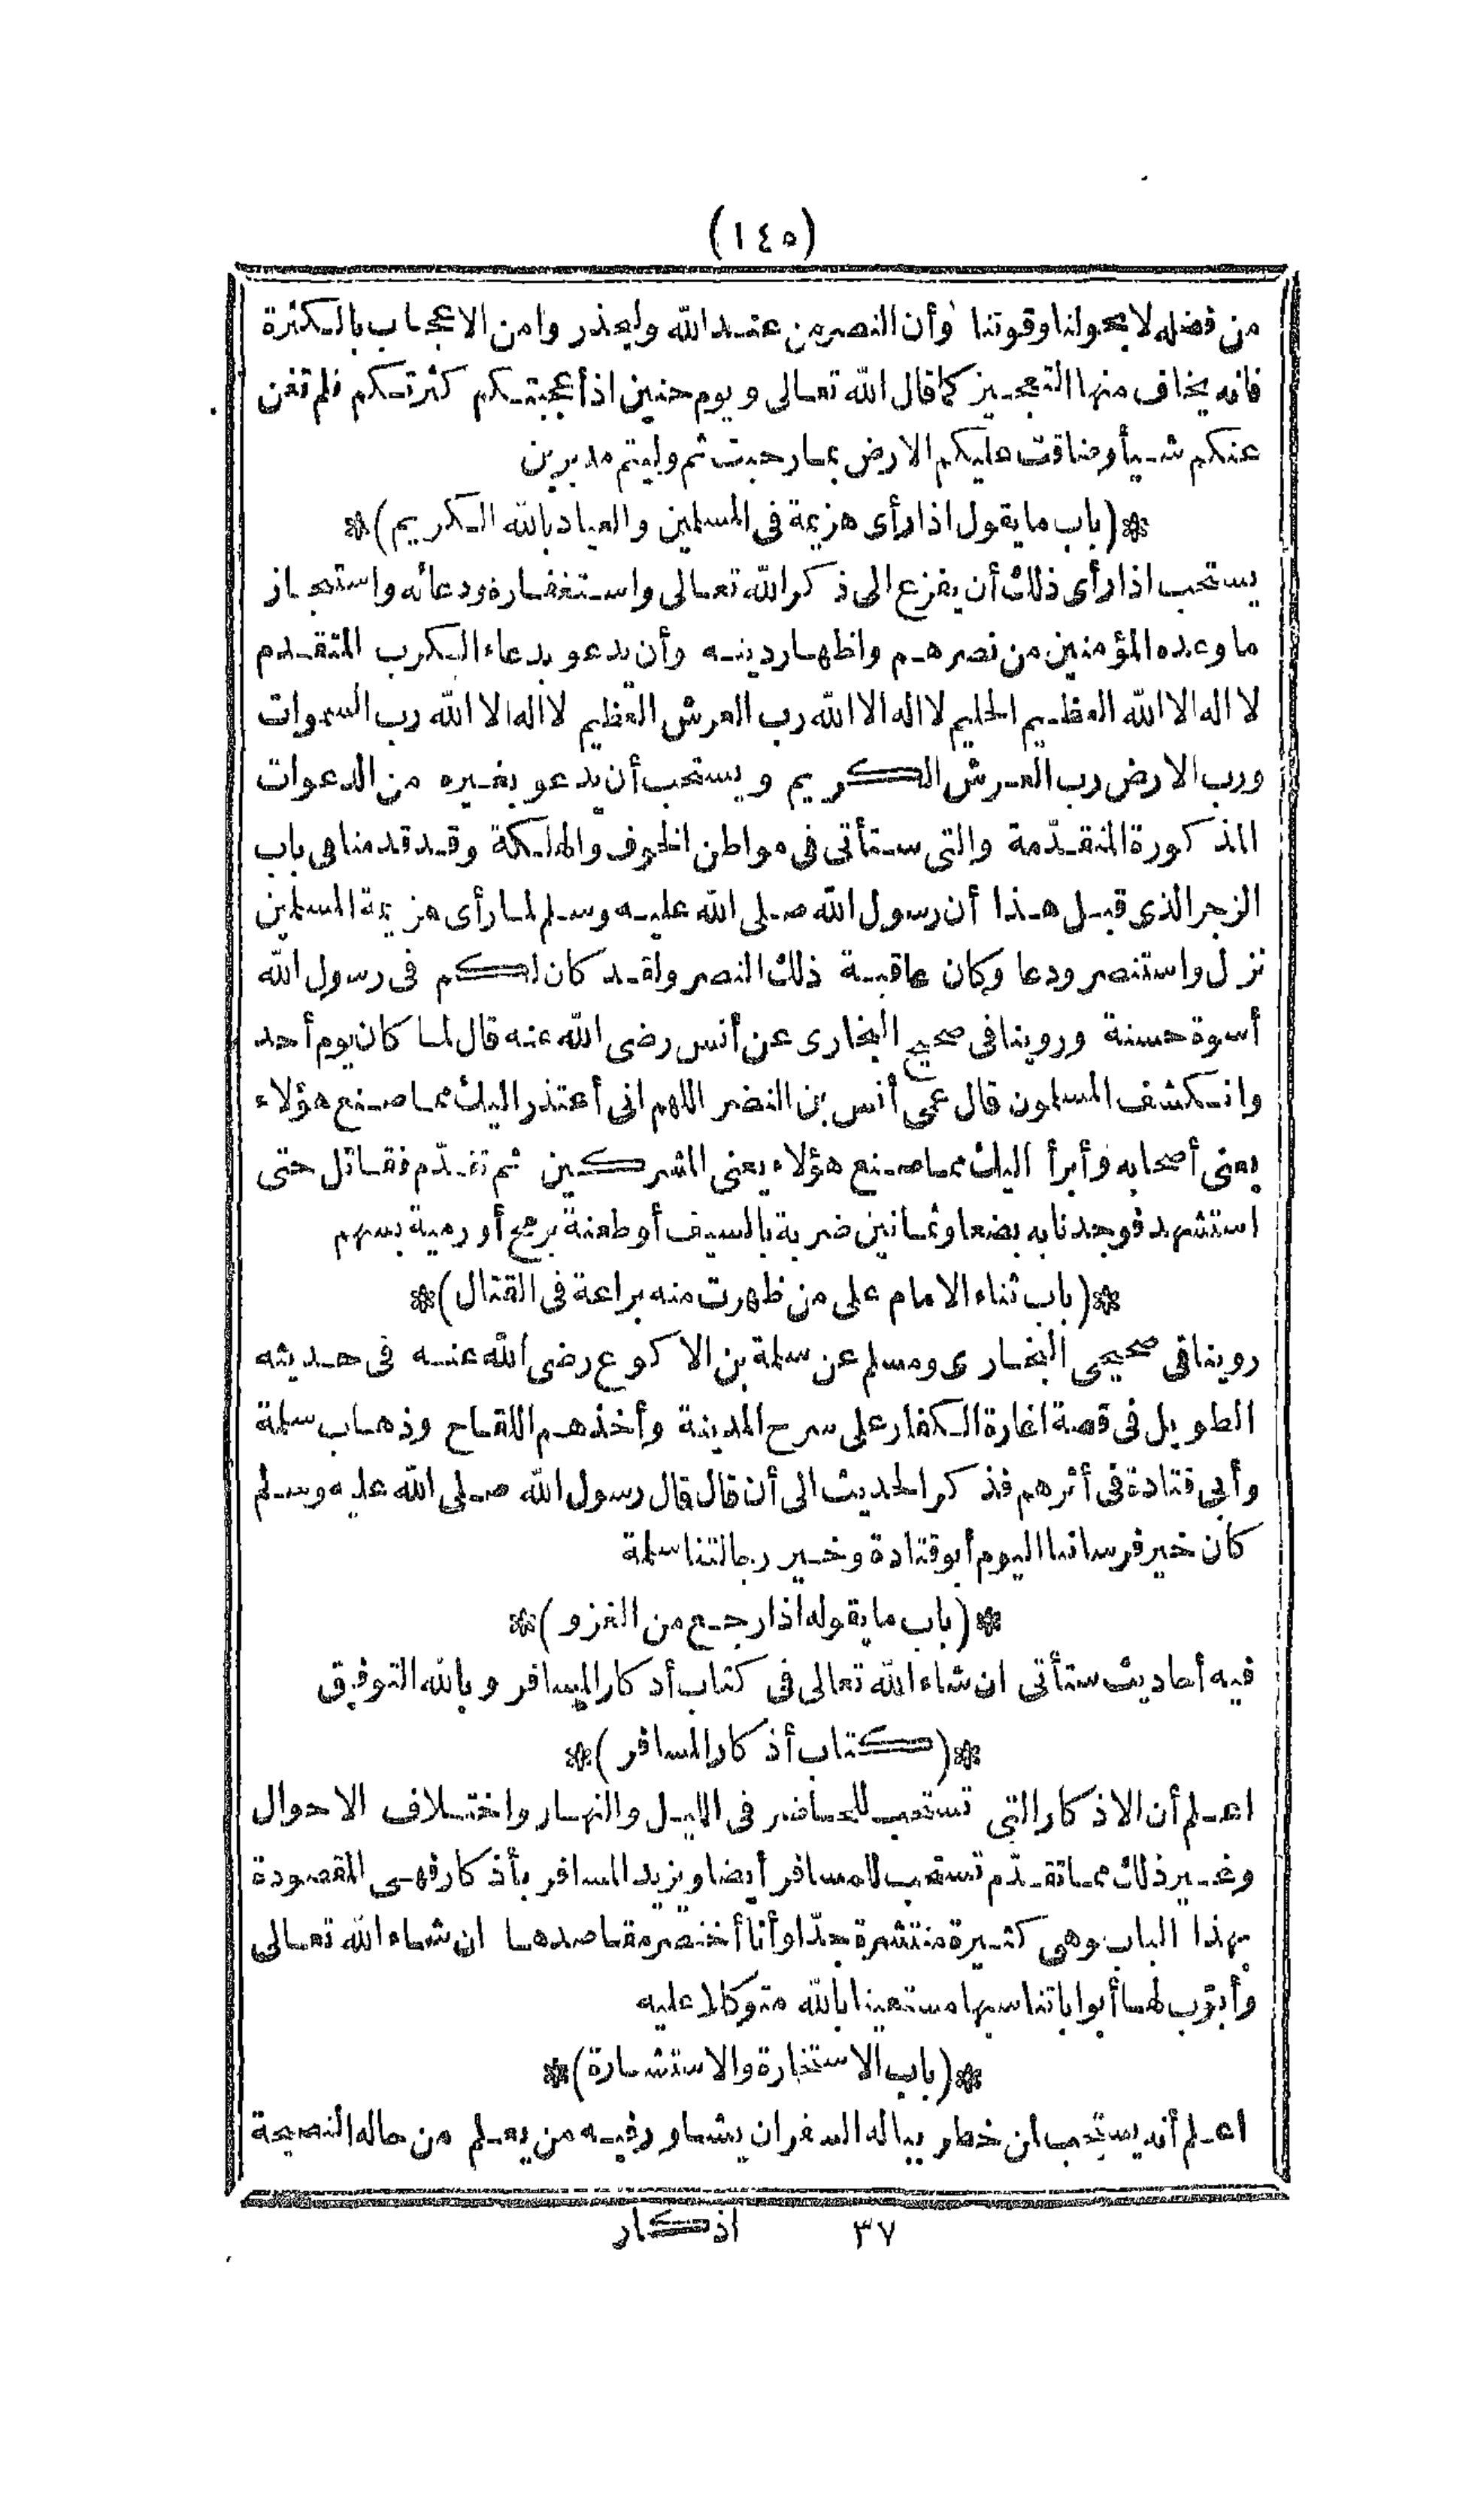 (١٤٥)
من فضله لا بحولنا وقوتنا وأن النصر من عند الله وليحذروا من الاعجاب بالكثرة
فانه يخاف منها التعجيز كما قال الله تعالى ويوم حنين اذ أعجبتكم كثرتكم فلم تغن
عنكم شيأ وضاقت عليكم الارض بما رحبت ثم وليتم مدبرين
*(باب ما يقول اذا رأى هزيمة فى المسلمين والعياد بالله الكريم)*
يستحب اذا رأى ذلك أن يفزع الى ذكر الله تعالى واستغفاره ودعائه واستنجاز
ما وعده المؤمنين من نصرهم واظهار دينه وأن يدعو بدعاء الكرب المتقدم
لا اله الا الله العظيم الحليم لا اله الا الله رب العرش العظيم لا اله الا الله رب السموات
ورب الارض رب العرش الكريم ويستحب أن يدعو بغيره من الدعوات
المذكورة المتقدّمة والتى ستأتى فى مواطن الخوف والهلكة وقد قدمنا فى باب
الزجر الذى قبل هذا أن رسول الله صلى الله عليه وسلم لما رأى هزيمة المسلمين
نزل واستنصر ودعا وكان عاقبة ذلك النصر ولقد كان لكم فى رسول الله
أسوة حسنة وروينا فى صحيح البخارى عن أنس رضى الله عنه قال لما كان يوم أحد
وانكشف المسلمون قال عمى أنس بن النضر اللهم انى أعتذر اليك مما صنع هؤلاء
يعنى أصحابه وأبرأ اليك مما صنع هؤلاء يعنى المشركين ثم تقدّم فقاتل حتى
استشهد فوجدنا به بضعا وثمانين ضربة بالسيف أو طعنة برمح أو رمية بسهم
*(باب ثناء الامام على من ظهرت منه براعة فى القتال)*
روينا فى صحيحى البخارى ومسلم عن سلمة بن الاكوع رضى الله عنه فى حديثه
الطويل فى قصة اغارة الكفار على سرح المدينة وأخذهم اللقاح وذهاب سلمة
وأبى قتادة فى أثرهم فذكر الحديث الى أن قال قال رسول الله صلى الله عليه وسلم
كان خير فرساننا اليوم أبو قتادة وخير رجالتنا سلمة
*(باب ما يقوله اذا رجع من الغزو)*
فيه أحاديث ستأتى ان شاء الله تعالى فى كتاب أذكار المسافر وبالله التوفيق
*(كتاب أذكار المسافر)*
اعلم أن الاذكار التى تستحب للحاضر فى الليل والنهار واختلاف الاحوال
وغير ذلك مما تقدّم تستحب للمسافر أيضا ويزيد المسافر بأذكار فهى المقصودة
بهذا الباب وهى كثيرة منتشرة جدّا وأنا أختصر مقاصدها ان شاء الله تعالى
وأبوّب لها أبوابا تناسبها مستعينا بالله متوكلا عليه
*(باب الاستخارة والاستشارة)*
اعلم أنه يستحب لمن خطر بباله السفر ان يشاور فيه من يعلم من حاله النصيحة
٣٧ اذكار